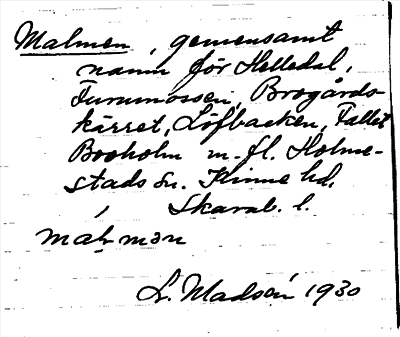 Malmen, gemensamt
namn för Helledal,
Furumossen, Brogårds-
kärret, Löfbacken, Fallet
Booholm m. fl. Holme-
stads sn. Kinne hd.
Skarab. l.
malmən
L. Madsén 1930